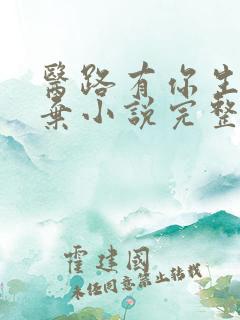 醫路有你生
棄小說完整
霍建國
未經同意禁止轉載